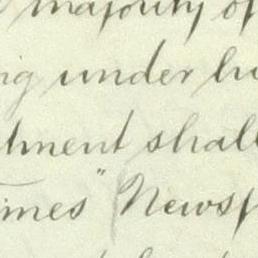 majority of
ing under hi
tment shall
Times" Newsp